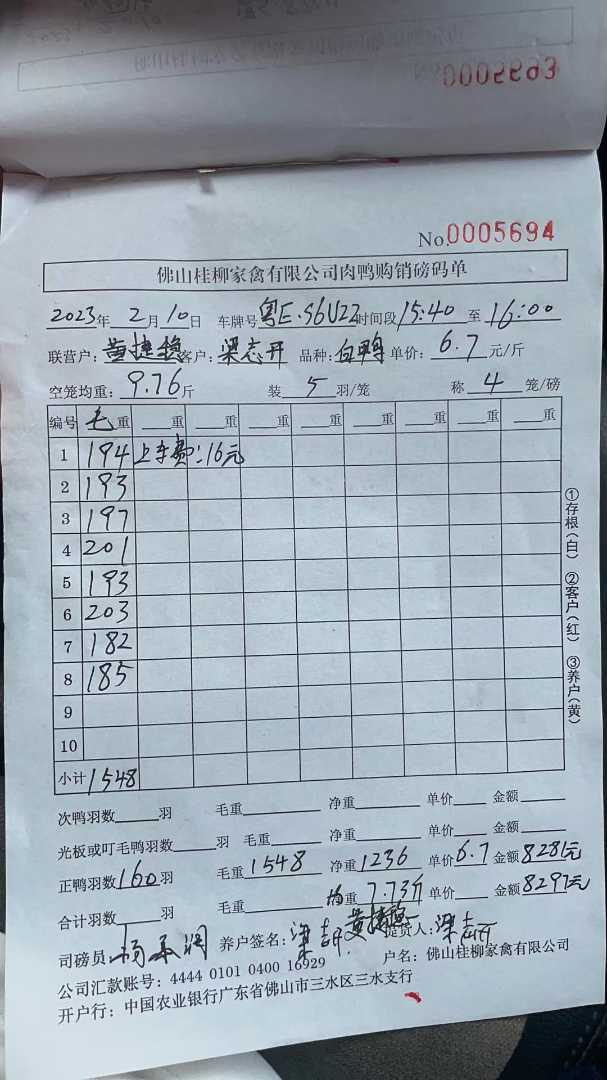 0005693
No.0005694
佛山桂柳家禽有限公司肉鸭购销磅码单
2023年 2月 10日 车牌号 粤E·S6U22 时间段 15:40 至 16:00
联营户: 黄捷稳 客户: 梁志开 品种: 白鸭 单价: 6.7 元/斤
空笼均重: 9.76 斤 装 5 羽/笼 称 4 笼/磅
编号 毛重 重 重 重 重 重 重 重 重
1 194 上车费:16元
2 193
3 197
4 201
5 193
6 203
7 182
8 185
9
10
小计 1548
①存根(白) ②客户(红) ③养户(黄)
次鸭羽数 羽 毛重 净重 单价 金额
光板或叮毛鸭羽数 羽 毛重 净重 单价 金额
正鸭羽数 160羽 毛重 1548 净重 1236 单价 6.7 金额 8281元
合计羽数 羽 毛重 均重 7.73斤 单价 金额 8297元
司磅员: 养户签名: 提货人: 梁志开
公司汇款账号: 4444 0101 0400 16929 户名: 佛山桂柳家禽有限公司
开户行: 中国农业银行广东省佛山市三水区三水支行